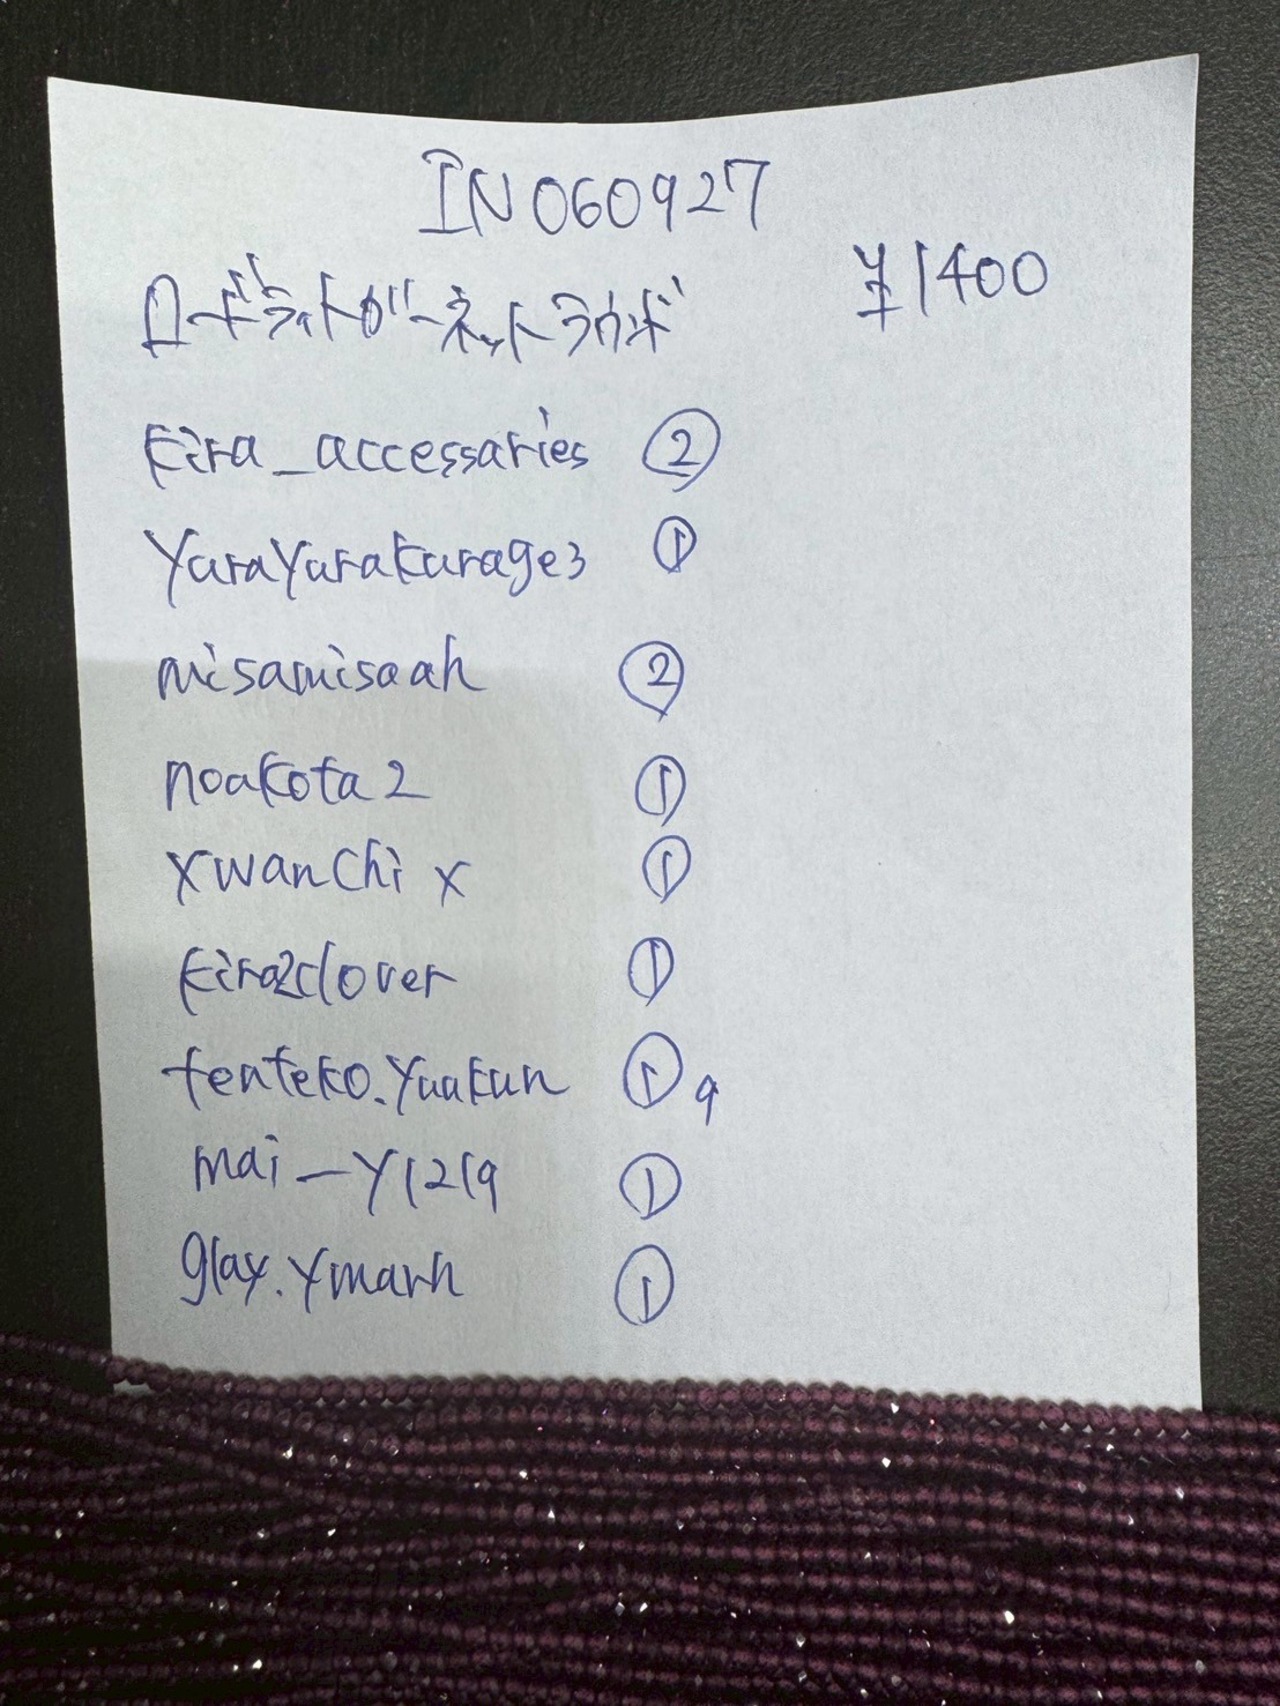 IN060927
¥1400
ロードライトガーネットラウンド
kira_accessaries ②
yurayurakurage3 ①
misamisaah ②
noakota2 ①
xwanchix ①
kira2clover ①
tenteko.yuukun ① 9
mai_y1219 ①
glay.ymarh ①